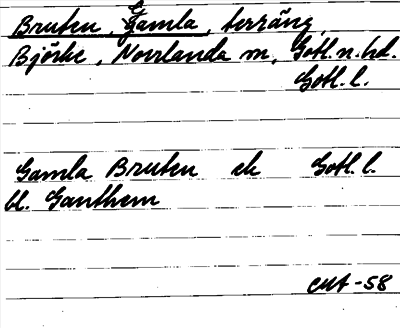 Bruten, Gamla, terräng,
Björke, Norrlanda sn, Gotl. n. hd.
Gotl. l.
Gamla Bruten ek Gotl. l.
bl. Ganthem
CMA-58